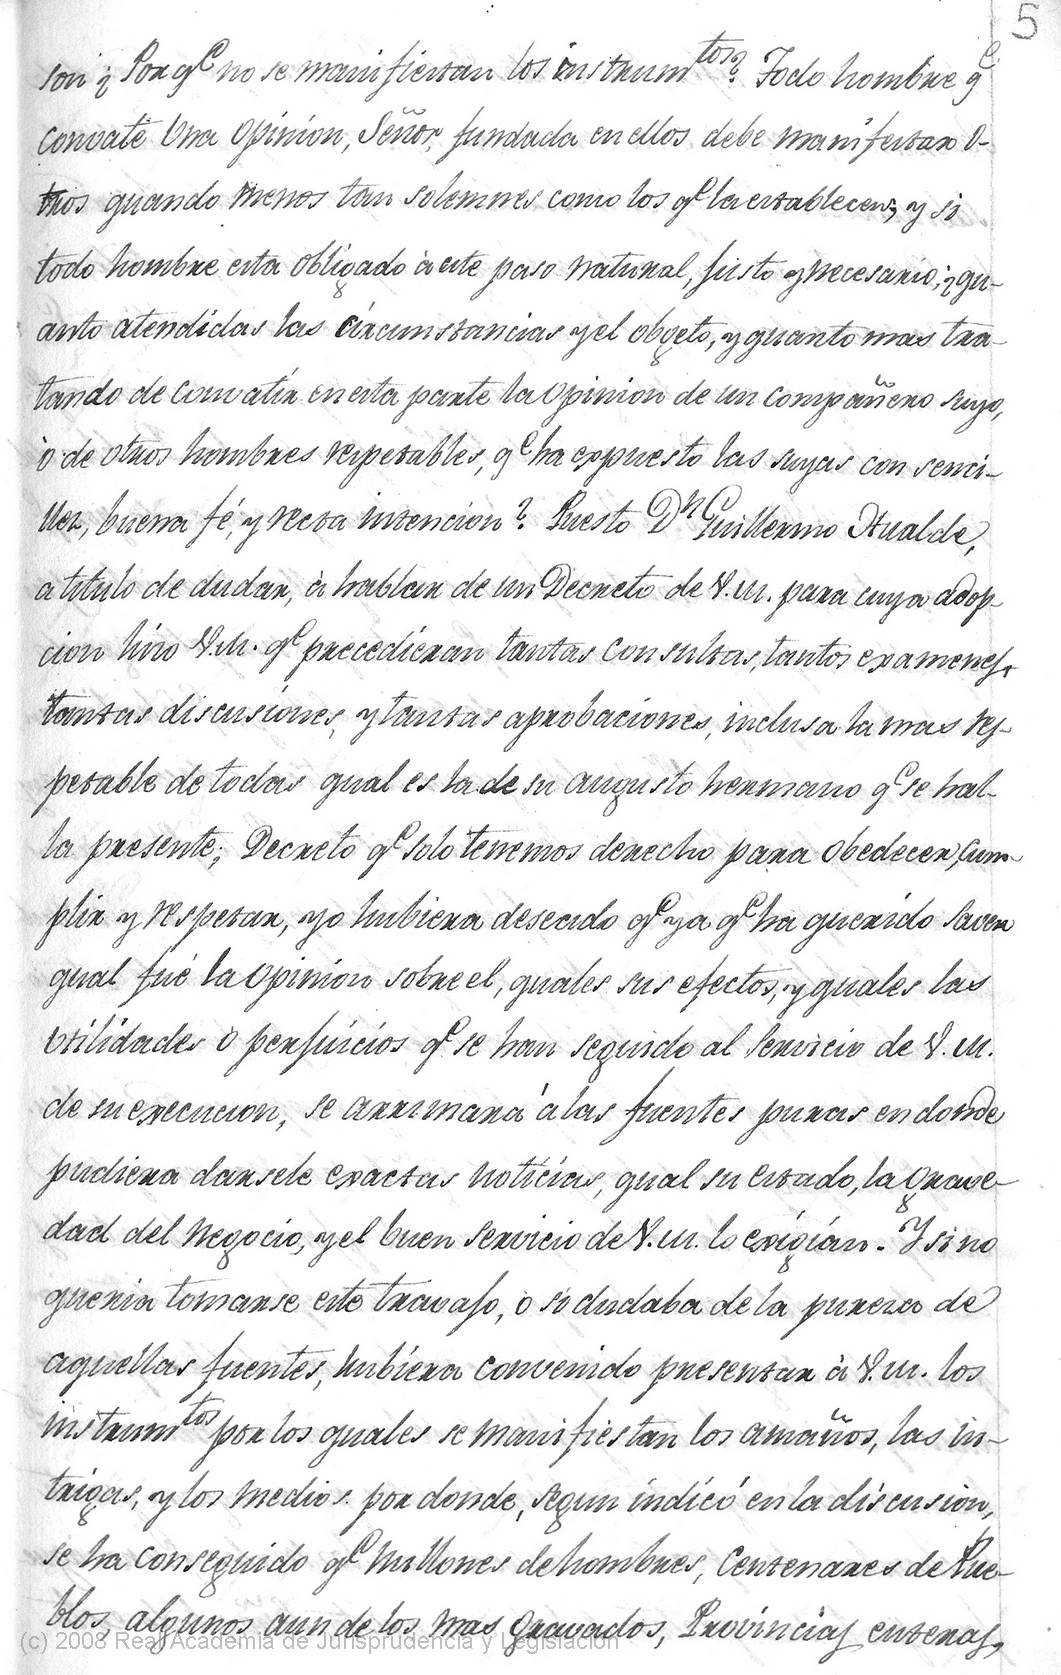 5
son ¿Por q.e no se manifiestan los instrum.tos? Todo hombre q.e
convate una opinion, Señor, fundada en ellos debe manifestar o-
tros quando menos tan solemnes como los q.e la establecen, y si
todo hombre esta obligado à este paso natural, justo y necesario; ¿qu-
anto atendidas las circunstancias y el objeto, y quanto mas tra-
tando de convatir en esta parte la opinion de un compañero suyo,
ò de otros hombres respetables, q.e ha expuesto las suyas con senci-
llez, buena fé, y recta intencion? Puesto D.n Guillermo Hualde,
a titulo de dudar, à hablar de un Decreto de V.M. para cuya adop-
cion hizo V.M. q.e precedieran tantas consultas, tantos examenes,
tantas discusiones, y tantas aprobaciones, inclusa la mas res-
petable de todas qual es la de su augusto hermano q.e se hal-
la presente; Decreto q.e solo tenemos derecho para obedecer, cum-
plir y respetar, yo hubiera deseado q.e ya q.e ha querido saver
qual fué la opinion sobre el, quales sus efectos, y quales las
utilidades o perjuicios q.e se han seguido al servicio de V.M.
de su execucion, se arrimara à las fuentes puras en donde
pudiera darsele exactas noticias, qual su estado, la grave-
dad del negocio, y el buen servicio de V.M. lo exígían. Y si no
queria tomarse este travajo, o si dudaba de la pureza de
aquellas fuentes, hubiera convenido presentar à V.M. los
instrum.tos por los quales se manifiestan los amaños, las in-
trigas, y los medios por donde, segun indicó en la discusion,
se ha conseguido q.e millones de hombres, Centenares de Pue-
blos, algunos aun de los mas gravados, Provincias enteras,
(c) 2008 Real Academia de Jurisprudencia y Legislación